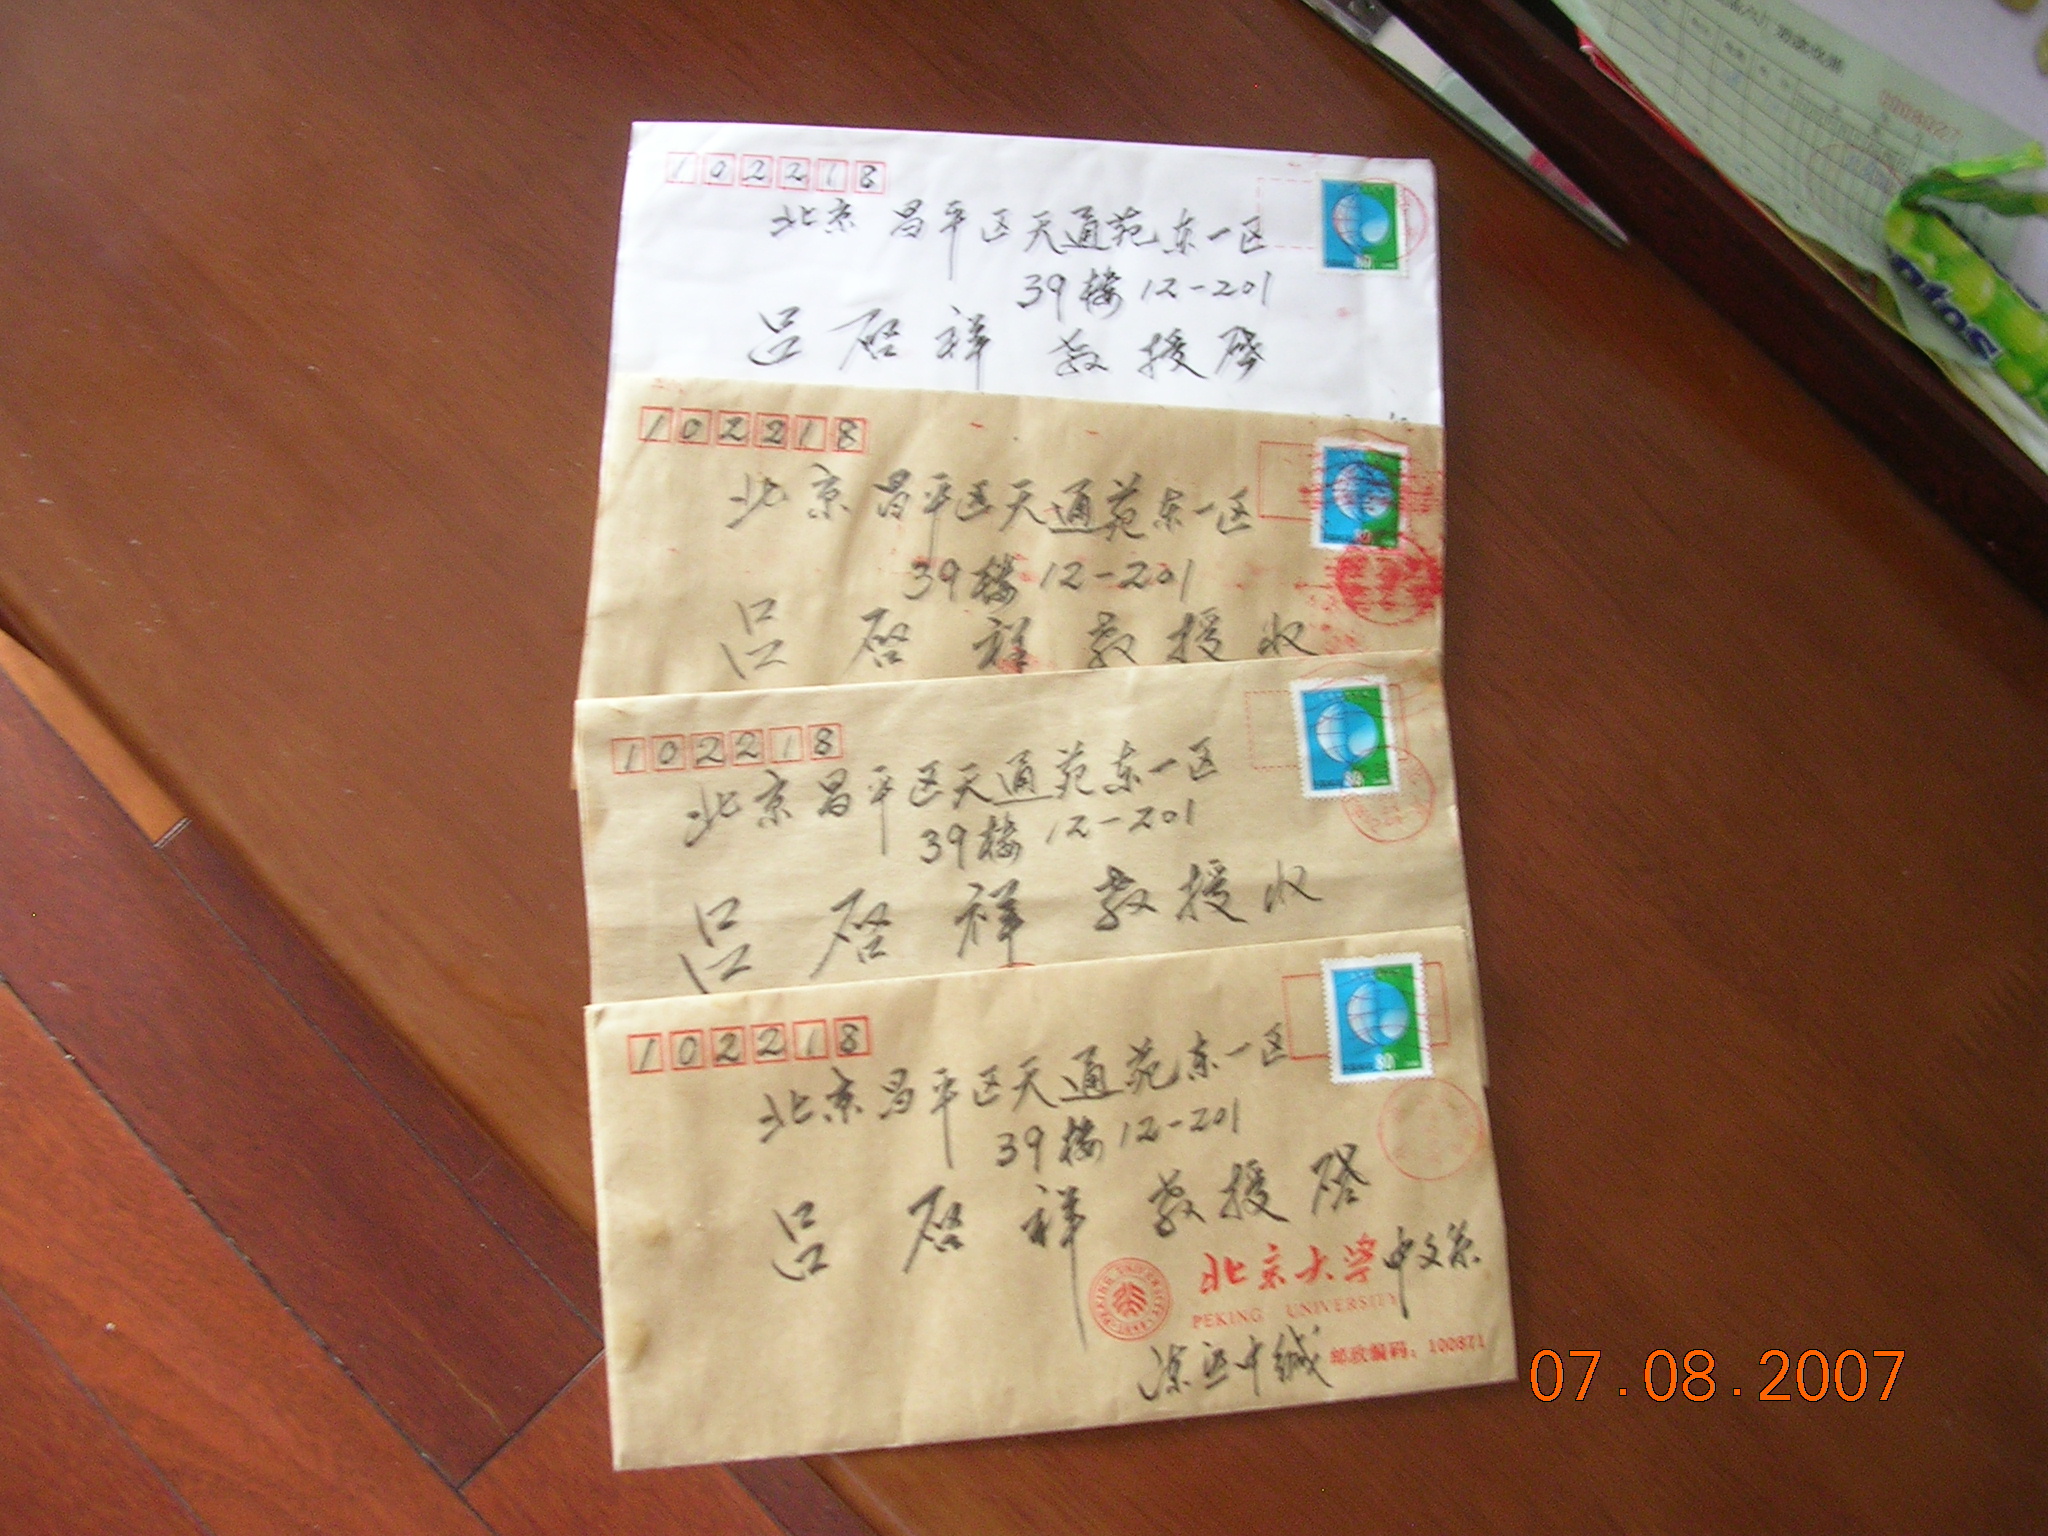 102218
北京昌平区天通苑东一区
39楼12-201
吕启祥 教授启
102218
北京昌平区天通苑东一区
39楼12-201
吕启祥教授收
102218
北京昌平区天通苑东一区
39楼12-201
吕启祥教授收
102218
北京昌平区天通苑东一区
39楼12-201
吕启祥教授启
北京大学中文系
PEKING UNIVERSITY
邮政编码：100871
80
80
80
80
07.08.2007